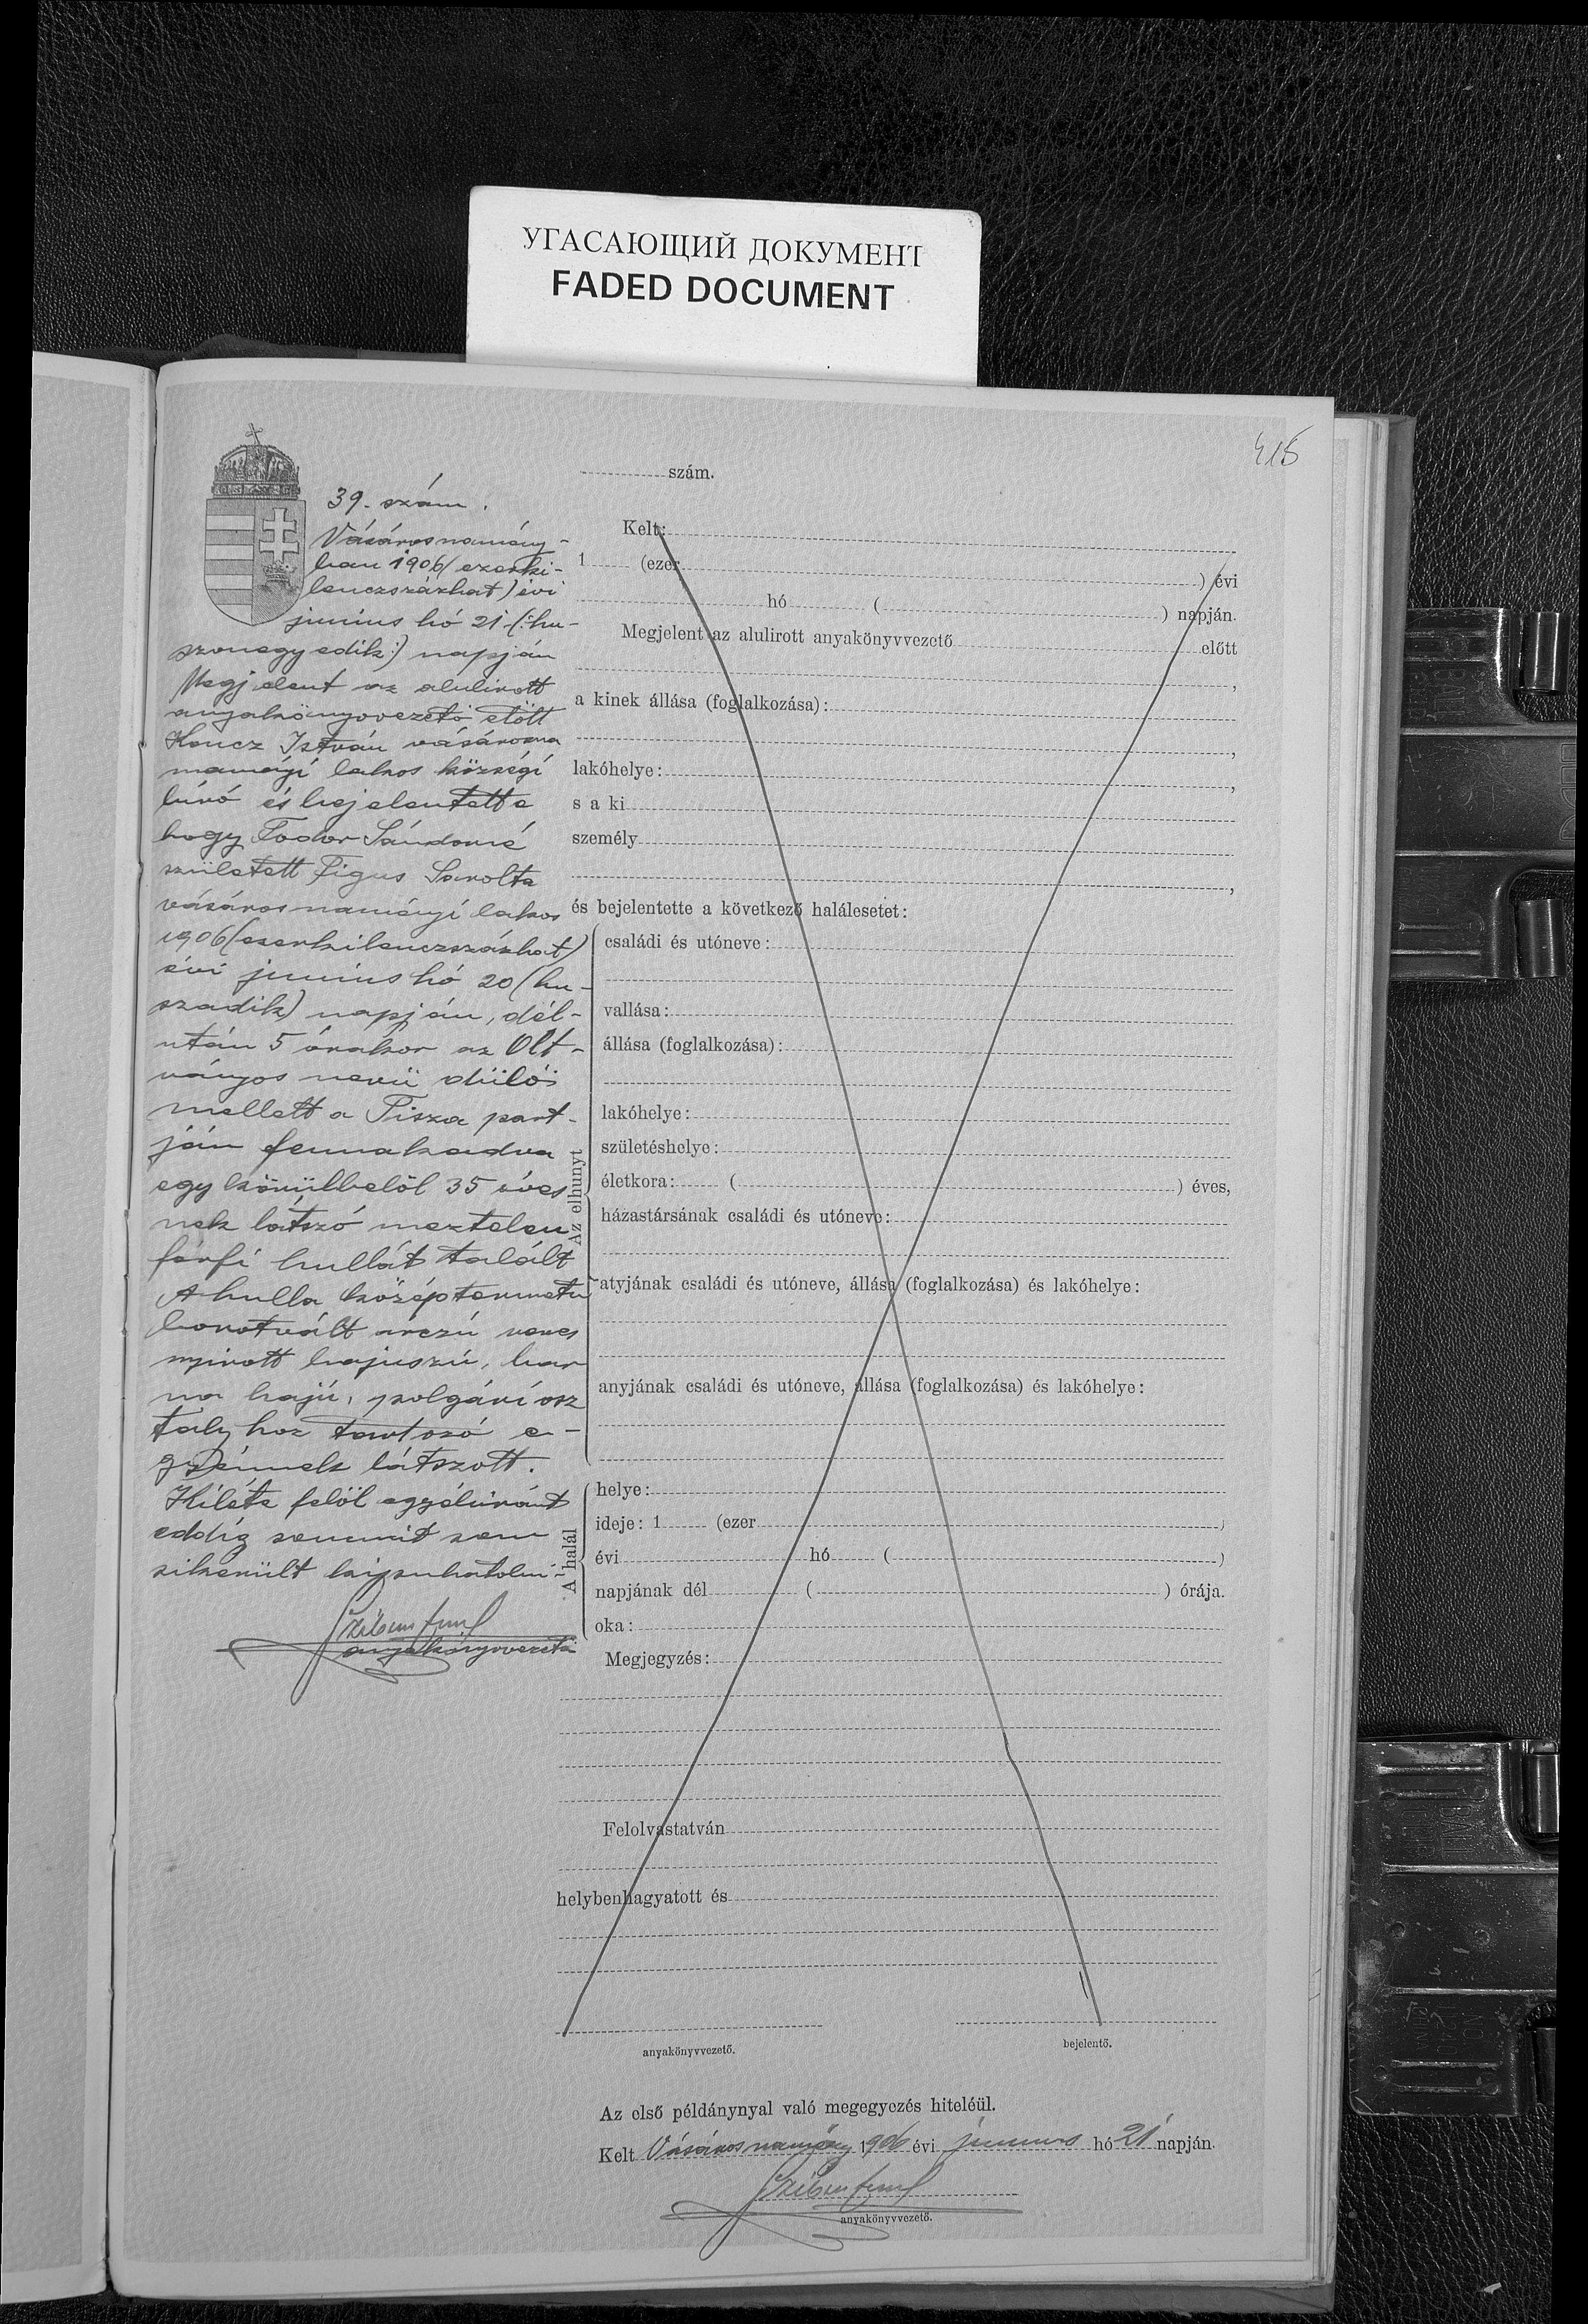 УГАСАЮЩИЙ ДОКУМЕНТ
FADED DOCUMENT
415
szám.
39. szám.
Vásárosnamény-
ban 1906 (ezerki-
lenczszázhat) évi
junius hó 21 (:hu-
szonegyedik:) napján
Megjelent az alulirott
anyakönyvvezető előtt
Koncz István vásárosna
ményi lakos községi
biró és bejelentette
hogy Fodor Sándorné
született Figus Sarolta
vásárosnaményi lakos
1906 (ezerkilenczszázhat)
évi junius hó 20 (hu-
szadik) napján, dél-
után 5 órakor az Olt-
ványos nevü dülö
mellett a Tisza part-
ján fennakadva
egy körülbelöl 35 éves
nek látszó meztelen
férfi hullát talált
A hulla középtermetü
borotvált arczú veres
nyirott bajuszú, bar
na hajú, polgári osz
tályhoz tartozó e-
gyénnek látszott.
Kiléte felöl egyébiránt
eddig semmit sem
sikerült kipuhatolni
anyakönyvvezető
Kelt:
1 (ezer ) évi
hó ( ) napján.
Megjelent az alulirott anyakönyvvezető előtt
,
a kinek állása (foglalkozása):
,
lakóhelye: ,
s a ki
személy
,
és bejelentette a következő halálesetet:
Az elhunyt
családi és utóneve:
vallása:
állása (foglalkozása):
lakóhelye:
születéshelye:
életkora: ( ) éves,
házastársának családi és utóneve:
atyjának családi és utóneve, állása (foglalkozása) és lakóhelye:
anyjának családi és utóneve, állása (foglalkozása) és lakóhelye:
A halál
helye:
ideje: 1 (ezer )
évi hó ( )
napjának dél ( ) órája.
oka:
Megjegyzés:
Felolvastatván
helybenhagyatott és
anyakönyvvezető.
bejelentő.
Az első példánynyal való megegyezés hiteléül.
Kelt Vásárosnamény 1906 évi junius hó 21 napján.
anyakönyvvezető.